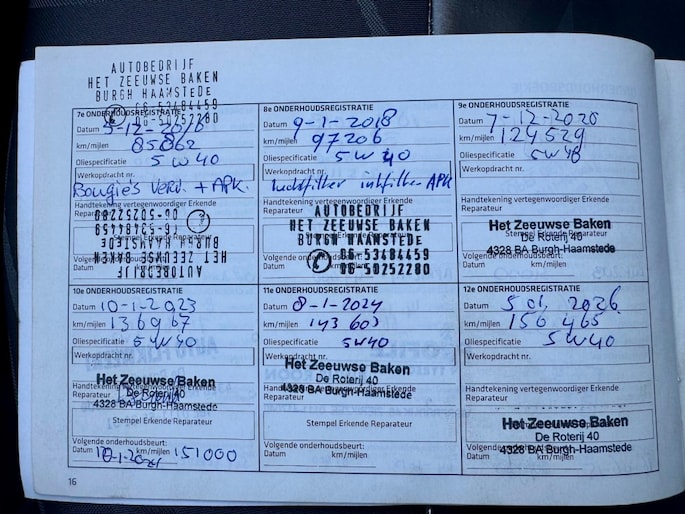 AUTOBEDRIJF
HET ZEEUWSE BAKEN
BURGH HAAMSTEDE
06-53484459
06-50252280
7e ONDERHOUDSREGISTRATIE
Datum 5-12-2016
km/mijlen 85862
Oliespecificatie 5W40
Werkopdracht nr.
Bougie's verv. + APK.
Handtekening vertegenwoordiger Erkende
Reparateur
AUTOBEDRIJF
HET ZEEUWSE BAKEN
BURGH HAAMSTEDE
06-53484459
06-50252280
8e ONDERHOUDSREGISTRATIE
Datum 9-1-2018
km/mijlen 97206
Oliespecificatie 5W40
Werkopdracht nr.
APK
Handtekening vertegenwoordiger Erkende
Reparateur
AUTOBEDRIJF
HET ZEEUWSE BAKEN
BURGH HAAMSTEDE
06-53484459
06-50252280
Volgende onderhoudsbeurt:
Datum
9e ONDERHOUDSREGISTRATIE
Datum 7-12-2020
km/mijlen 124529
Oliespecificatie
Werkopdracht nr.
Handtekening vertegenwoordiger Erkende
Reparateur
Het Zeeuwse Baken
Stempel Erkende Reparateur
De Roterij 40
4328 BA Burgh-Haamstede
Volgende onderhoudsbeurt:
Datum km/mijlen
10e ONDERHOUDSREGISTRATIE
Datum 10-1-2023
km/mijlen 136967
Oliespecificatie 5W40
Werkopdracht nr.
Het Zeeuwse Baken
De Roterij 40
4328 BA Burgh-Haamstede
Handtekening vertegenwoordiger Erkende
Reparateur
Stempel Erkende Reparateur
Volgende onderhoudsbeurt:
Datum km/mijlen 151000
11e ONDERHOUDSREGISTRATIE
Datum 8-1-2024
km/mijlen 143 603
Oliespecificatie 5W40
Werkopdracht nr.
Het Zeeuwse Baken
De Roterij 40
4328 BA Burgh-Haamstede
Handtekening vertegenwoordiger Erkende
Reparateur
Stempel Erkende Reparateur
Volgende onderhoudsbeurt:
Datum km/mijlen
12e ONDERHOUDSREGISTRATIE
Datum 5 01 2026
km/mijlen 156 465
Oliespecificatie 5W40
Werkopdracht nr.
Handtekening vertegenwoordiger Erkende
Reparateur
Het Zeeuwse Baken
De Roterij 40
4328 BA Burgh-Haamstede
Volgende onderhoudsbeurt:
Datum km/mijlen
16